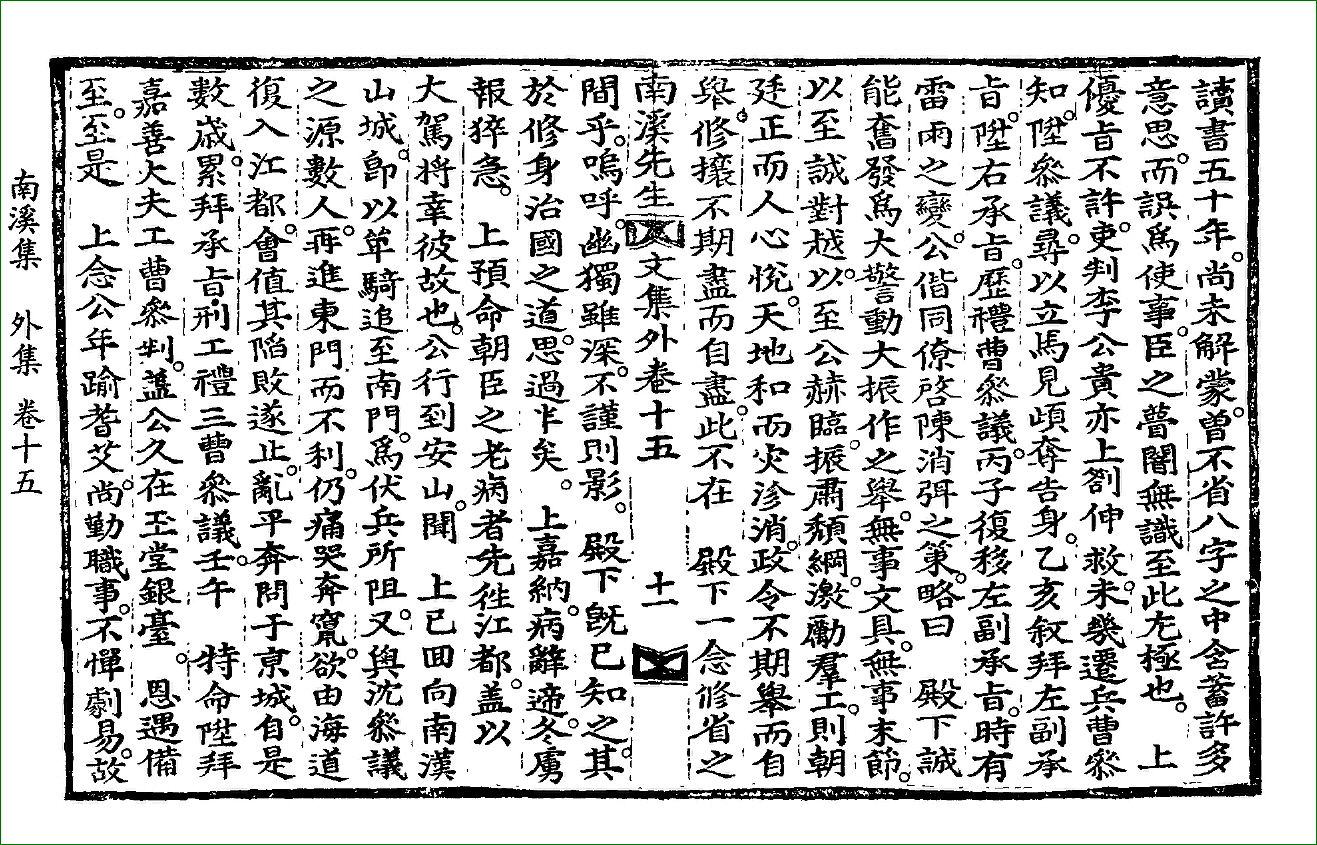 讀書五十年。尙未解蒙。曾不省八字之中含蓄許多
意思。而誤爲使事。臣之瞢闇無識至此尤極也。 上
優旨不許。吏判李公貴亦上箚伸救。未幾遷兵曹參
知。陞參議。尋以立馬見頉奪告身。乙亥敍拜左副承
旨。陞右承旨。歷禮曹參議。丙子復移左副承旨。時有
雷雨之變。公偕同僚啓陳消弭之策。略曰 殿下誠
能奮發爲大警動大振作之擧。無事文具。無事末節。
以至誠對越。以至公赫臨。振肅頹綱。激勵羣工。則朝
廷正而人心悅。天地和而灾沴消。政令不期擧而自
擧。修攘不期盡而自盡。此不在 殿下一念修省之
南溪先生文集外卷十五 十一
間乎。嗚呼。幽獨雖深。不謹則影。 殿下旣已知之。其
於修身治國之道。思過半矣。 上嘉納。病辭遞。冬虜
報猝急。 上預命朝臣之老病者先往江都。盖以
大駕將幸彼故也。公行到安山。聞 上已回向南漢
山城。卽以單騎追至南門。爲伏兵所阻。又與沈參議
之源數人。再進東門而不利。仍痛哭奔竄。欲由海道
復入江都。會値其陷敗遂止。亂平奔問于京城。自是
數歲。累拜承旨,刑工禮三曹參議。壬午 特命陞拜
嘉善大夫工曹參判。蓋公久在玉堂銀臺。 恩遇備
至。至是 上念公年踰耆艾。尙勤職事。不憚劇易。故
南溪集 外集 卷十五